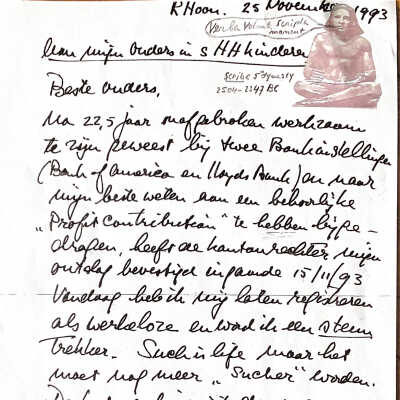 R'Hoon. 25 November 1993
Verba Volant Scripta
manent
Aan mijn ouders in 's HH Kinderen
Scribe 5e dynasty
2504-2347 BC
Beste ouders,
Na 22,5 jaar onafgebroken werkzaam
te zijn geweest bij twee Bankinstellingen
(Bank of America en Lloyds Bank) en naar
mijn beste weten aan een behoorlijke
"Profit contribution" te hebben bijge-
dragen, heeft de kantonrechter mijn
ontslag bevestigd ingaande 15/11/93
Vandaag heb ik mij laten registreren
als werkeloze en word ik een steun
trekker. Such is life maar het
moet nog meer "Sucher" worden.